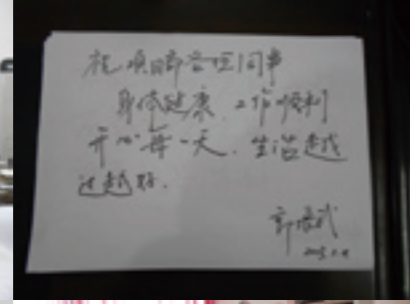 祝项目部各位同事
身体健康、工作顺利
开心每一天、生活越
过越好.
郭